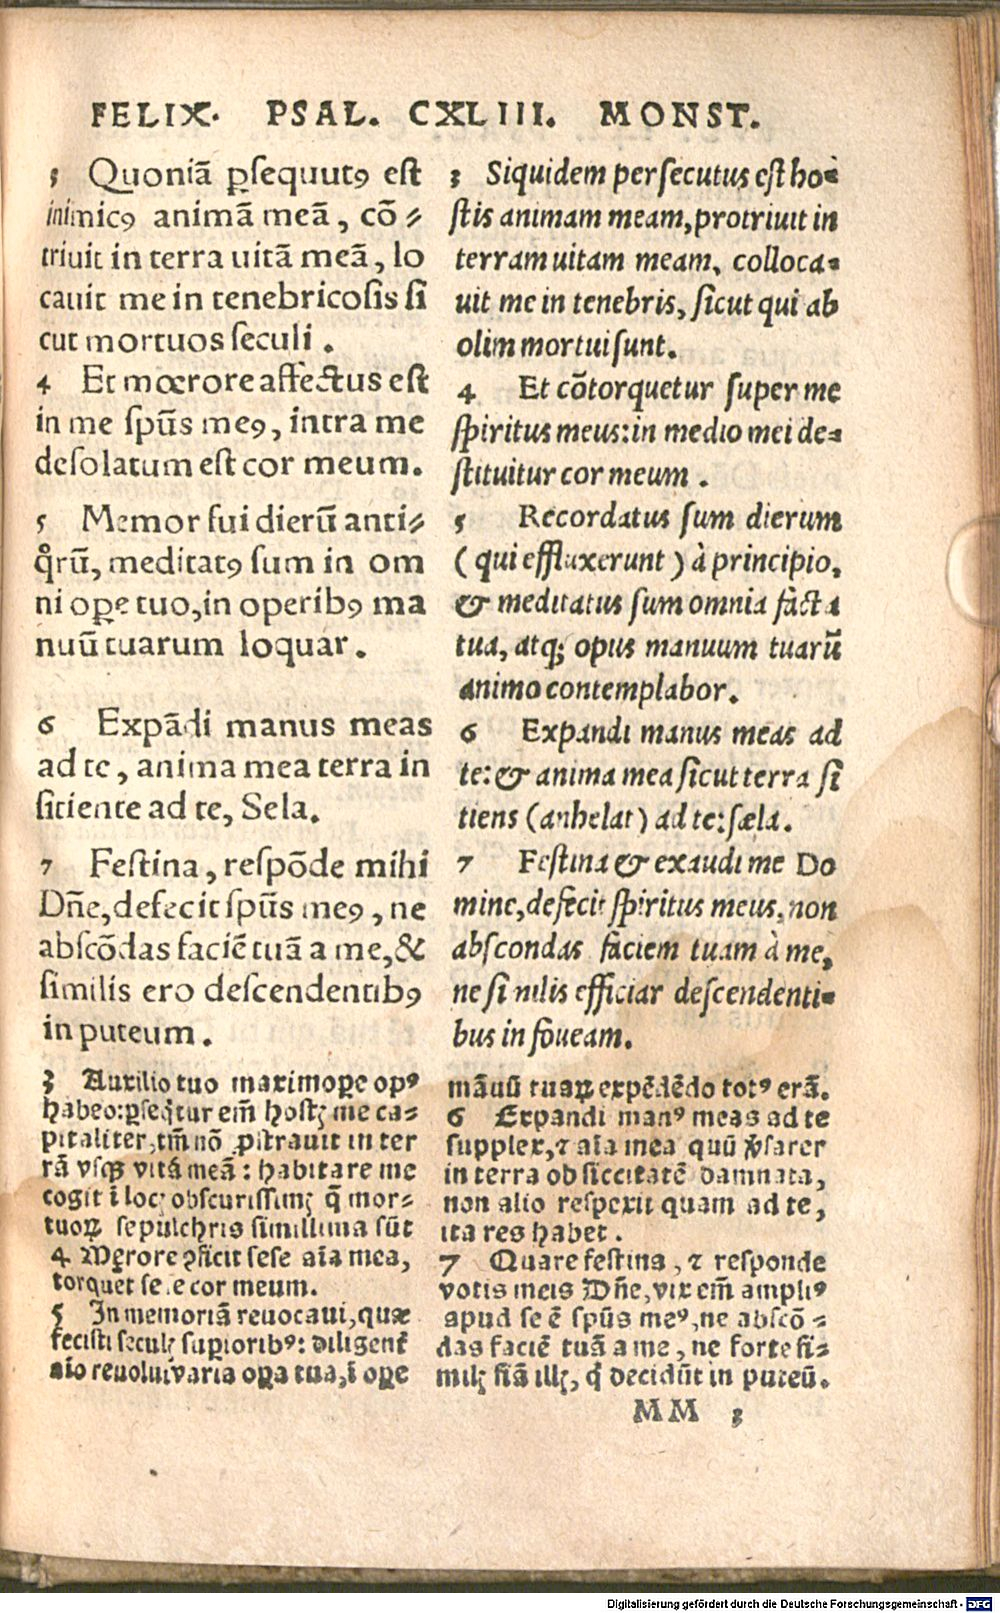 FELIX. PSAL. CXLIII. MONST.
3 Quoniã ꝑsequutꝯ est
inimicꝯ animã meã, cõ⸗
triuit in terra uitã meã, lo
cauit me in tenebricosis si
cut mortuos seculi.
4 Et mœrore affectus est
in me spũs meꝯ, intra me
desolatum est cor meum.
5 Memor fui dierũ anti⸗
q̊rũ, meditatꝯ sum in om
ni oꝑe tuo, in operibꝯ ma
nuũ tuarum loquar.
6 Expãdi manus meas
ad te, anima mea terra in
sitiente ad te, Sela.
7 Festina, respõde mihi
Dñe, defecit spũs meꝯ, ne
abscõdas faciẽ tuã a me, &
similis ero descendentibꝯ
in puteum.
3 Siquidem persecutus est ho⸗
stis animam meam, protriuit in
terram uitam meam, colloca⸗
uit me in tenebris, sicut qui ab
olim mortui sunt.
4 Et cõtorquetur super me
spiritus meus: in medio mei de⸗
stituitur cor meum.
5 Recordatus sum dierum
(qui effluxerunt) à principio,
& meditatus sum omnia facta
tua, atq; opus manuum tuarũ
animo contemplabor.
6 Expandi manus meas ad
te: & anima mea sicut terra si
tiens (anhelat) ad te: sæla.
7 Festina & exaudi me Do
mine, defecit spiritus meus, non
abscondas faciem tuam à me,
ne similis efficiar descendenti⸗
bus in foueam.
3 Auxilio tuo maximoꝑe opꝰ
habeo: ꝑseq̃tur em̃ hostꝭ me ca⸗
pitaliter, tm̃ nõ ꝓstrauit in ter
rã vsqꝫ vitã meã: habitare me
cogit ĩ locꝭ obscurissimꝭ q̃ mor⸗
tuoꝝ sepulchris simillima sũt
4 Męrore ꝯficit sese aĩa mea,
torquet sese cor meum.
5 In memoriã reuocaui, quæ
fecisti seculꝭ suꝑioribꝰ: diligent̃
aĩo reuolui varia oꝑa tua, ĩ oꝑe
mãuũ tuaꝝ expẽdẽdo totꝰ erã.
6 Expandi manꝰ meas ad te
supplex, ⁊ aĩa mea quũ ꝟsarer
in terra ob siccitatẽ damnata,
non alio respexit quam ad te,
ita res habet.
7 Quare festina, ⁊ responde
votis meis Dñe, vix em̃ ampliꝰ
apud se ẽ spũs meꝰ, ne abscõ⸗
das faciẽ tuã a me, ne forte si⸗
milꝭ fiã illꝭ, q̃ decidũt in puteũ.
MM 3
Digitalisierung gefördert durch die Deutsche Forschungsgemeinschaft - DFG